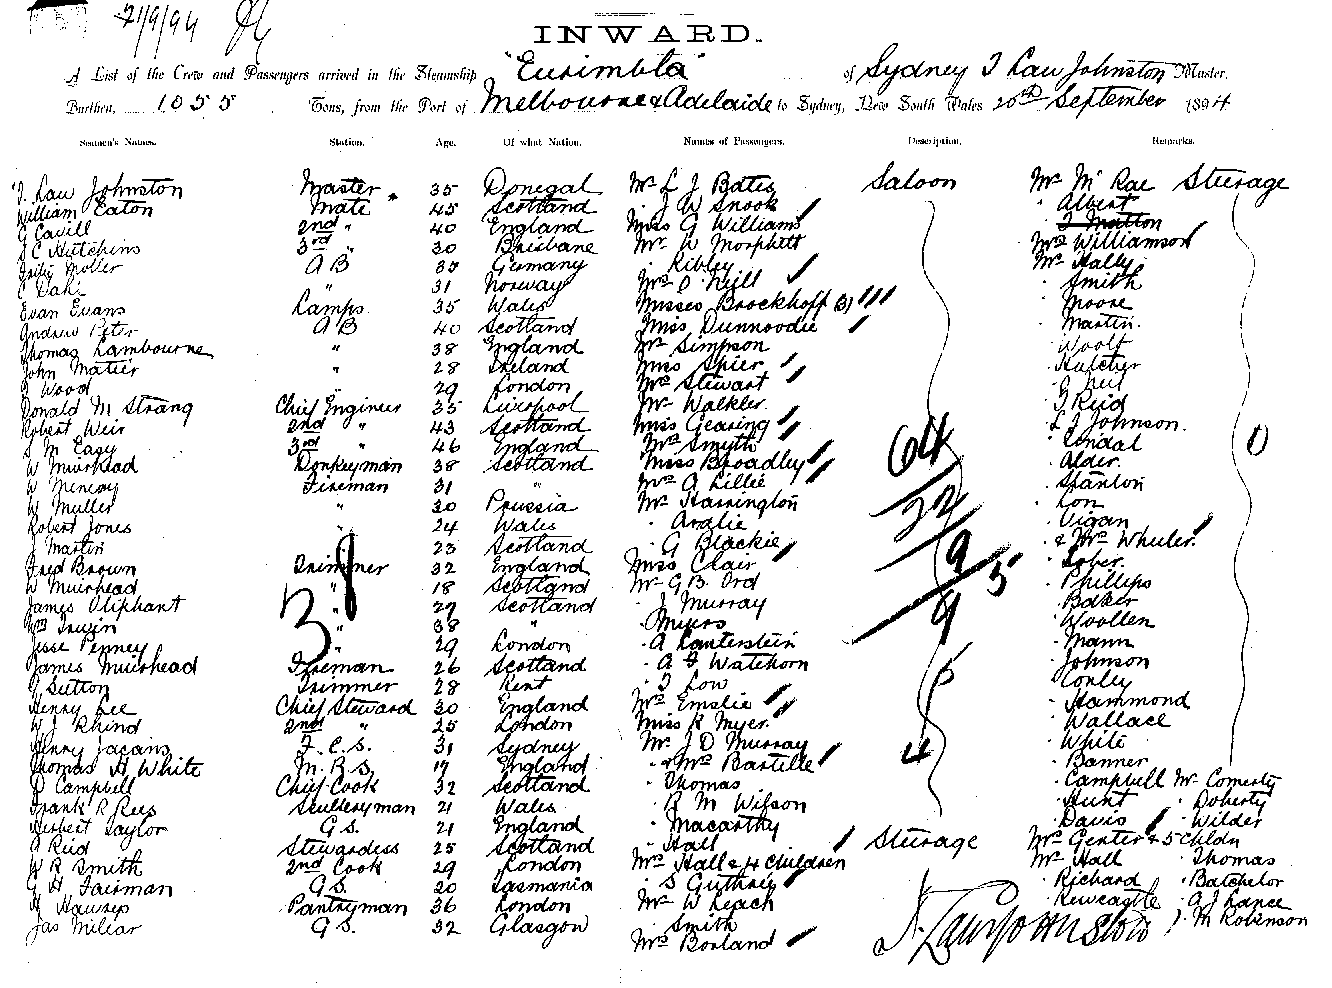 21/9/94
INWARD.
A List of the Crew and Passengers arrived in the Steamship "Eurimbla" of Sydney J Law Johnston Master,
Burthen, 1055 Tons, from the Port of Melbourne & Adelaide to Sydney, New South Wales 20th September 1894
Seamen's Names. Station. Age. Of what Nation. Names of Passengers. Description. Remarks.
J. Law Johnston Master 35 Donegal Mr L J Bates Saloon Mr McRae Steerage
William Eaton Mate 45 Scotland " J W Snook " Albert
G Cavill 2nd " 40 England Miss G Williams
J C Hutchins 3rd " 30 Brisbane Mr W Morphett Mrs Williamson
A B 35 Germany " Ribley Mr Hally
" 31 Norway Mrs O'Neill " Smith
Evan Evans Lamps 35 Wales Misses Brockhoff (3) " Moore
Andrew Peter A B 40 Scotland Miss Dunnoodie " Martin
Thomas Lambourne " 38 England Mr Simpson " Woolf
John Matier " 28 Ireland Miss Spier " Hatcher
J Wood " 29 London Mrs Stewart
Donald M Strang Chief Engineer 35 Liverpool Mr Walkler " J Reid
Robert Weir 2nd " 43 Scotland Miss Gearing " L J Johnson
J M Easy 3rd " 46 England Mrs Smyth " Lendal
W Muirhead Donkeyman 38 Scotland Miss Broadley " Alder
W Fireman 31 " Mrs A Lillie " Stanton
W Muller " 30 Prussia Mr Harrington
Robert Jones " 24 Wales " Ardlie " Vigan
J Martin " 23 Scotland " G Blackie " & Mrs Wheeler
Fred Brown Trimmer 32 England Miss Clair
W Muirhead " 18 Scotland Mr G B Ord " Phillips
James Oliphant " 27 Scotland " J Murray " Baker
Wm Irwin " 38 " " Myers " Woollen
Jesse Penney " 29 London " A Lanterstein " Mann
James Muirhead Fireman 26 Scotland " A F Watchorn " Johnson
J Sutton Trimmer 28 Kent " J Low " Conley
Henry Lee Chief Steward 30 England Mrs Emslie " Hammond
W J Rhind 2nd " 25 London Miss R Myer " Wallace
Henry F.C.S. 31 Sydney Mr J D Murray " White
Thomas H White M.R.S. 19 England " & Mrs Bastille " Banner
D Campbell Chief Cook 32 Scotland " Thomas " Campbell Mr Comerty
Frank R Rees Sculleryman 21 Wales " R M Wilson " Hunt " Doherty
Herbert Taylor G.S. 21 England " Macarthy " Davis " Wilder
A Reid Stewardess 25 Scotland " Hall Steerage Mrs Genter & 5 Chldn
W R Smith 2nd Cook 29 London Mrs Hall & 4 Children Mr Hall " Thomas
G H Fairman G.S. 20 Tasmania " S Guthrey " Richard " Batchelor
Pantryman 36 London Mr W Leach " Newcastle " A J Lance
Jas Millar G.S. 32 Glasgow " Smith J M Robinson
Mrs Borland
64
22
9 5
9
4
3
1
J. Law Johnston